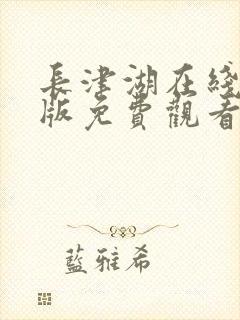 長津湖在綫
版免費觀看
藍雅希